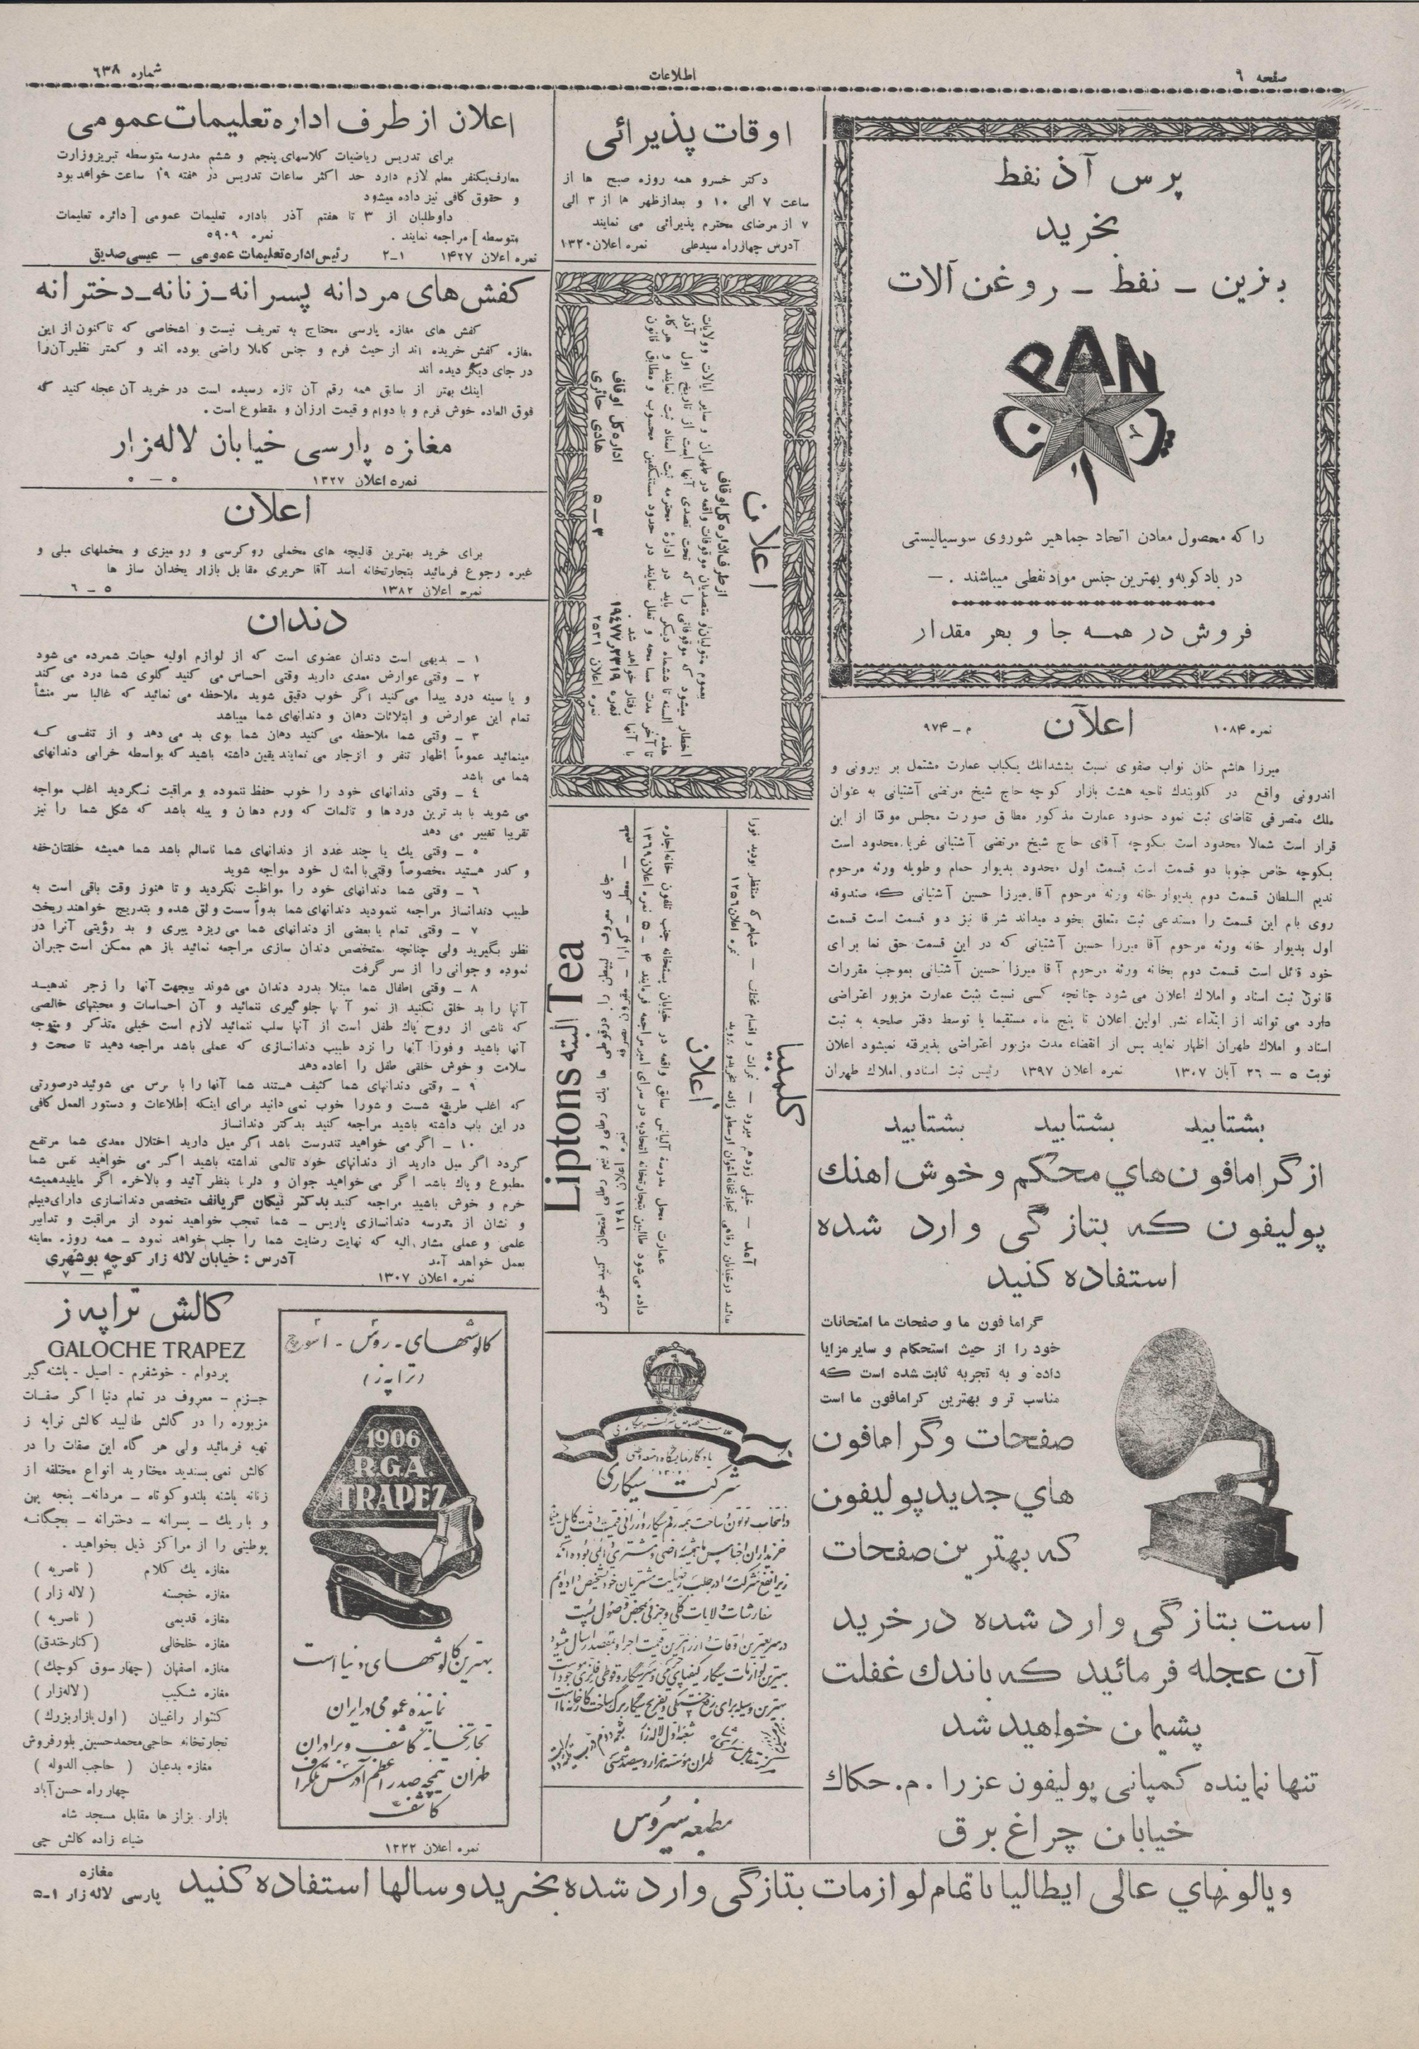 صفحه ۹
اطلاعات
شماره ٦٣٨
پرس آذ نفط
بخرید
بنزین ـ نفط ـ روغن آلات
PAN
پرس آذ
را که محصول معادن اتحاد جماهیر شوروی سوسیالیستی
در بادکوبه و بهترین جنس مواد نفطی میباشند . ـ
فروش در همه جا و بهر مقدار
نمره ۱۰۸۴
اعلان
م ـ ۹۷۴
میرزا هاشم خان نواب صفوی نسبت بششدانك یکباب عمارت مشتمل بر بیرونی و
اندرونی واقع در کلوبندك ناحیه هشت بازار کوچه حاج شیخ مرتضی آشتیانی به عنوان
ملك متصرفی تقاضای ثبت نمود حدود عمارت مذکور مطابق صورت مجلس موقتا از این
قرار است شمالا محدود است بکوچه آقای حاج شیخ مرتضی آشتیانی غربا محدود است
بکوچه خاص جنوبا دو قسمت است قسمت اول محدود بدیوار حمام و طویله ورثه مرحوم
ندیم السلطان قسمت دوم بدیوار خانه ورثه مرحوم آقا میرزا حسین آشتیانی که صندوقه
روی بام این قسمت را مستدعی ثبت متعلق بخود میداند شرقا نیز دو قسمت است قسمت
اول بدیوار خانه ورثه مرحوم آقا میرزا حسین آشتیانی که در این قسمت حق نما برای
خود قائل است قسمت دوم بخانه ورثه مرحوم آقا میرزا حسین آشتیانی بموجب مقررات
قانون ثبت اسناد و املاك اعلان می شود چنانچه کسی نسبت بثبت عمارت مزبور اعتراضی
دارد می تواند از ابتداء نشر اولین اعلان تا پنج ماه مستقیما یا توسط دفتر صلحیه به ثبت
اسناد و املاك طهران اظهار نماید پس از انقضاء مدت مزبور اعتراضی پذیرفته نمیشود اعلان
نوبت ۵ ـ ۲۶ آبان ۱۳۰۷ نمره اعلان ۱۳۹۷ رئیس ثبت اسناد و املاك طهران
بشتابید بشتابید بشتابید
از گرامافون‌های محکم و خوش اهنك
پولیفون که بتازگی وارد شده
استفاده کنید
گراما فون ما و صفحات ما امتحانات
خود را از حیث استحکام و سایر مزایا
داده و به تجربه ثابت شده است که
مناسب تر و بهترین گرامافون ما است
صفحات و گرامافون
های جدید پولیفون
که بهترین صفحات
است بتازگی وارد شده در خرید
آن عجله فرمائید که باندك غفلت
پشیمان خواهید شد
تنها نماینده کمپانی پولیفون عزرا . م . حکاك
خیابان چراغ برق
اوقات پذیرائی
دکتر خسرو همه روزه صبح ها از
ساعت ۷ الی ۱۰ و بعدازظهر ها از ۳ الی
۷ از مرضای محترم پذیرائی می نمایند
آدرس چهارراه سیدعلی نمره اعلان ۱۳۲۰
اعلان
از طرف اداره کل اوقاف
بعموم متولیان و متصدیان موقوفات واقعه در طهران و سایر ایالات و ولایات
اخطار میشود که موقوفاتی را که تحت تصدی آنها است از تاریخ اول آذر
هذه السنه تا ششماه دیگر باید در ادارهٔ محترمه ثبت اسناد ثبت نمایند و هرگاه
تا آخر مدت مسامحه و تعلل نمایند در حدود مستنکفین محسوب و مطابق قانون
با آنها رفتار خواهد شد .
نمره ۱۹۴۷۷٫۲۳۱۹ اداره کل اوقاف
نمره اعلان ۲۵۳۱ ۳ ـ ۵ هادی حائری
کلمبیا
آمد ـ خیلی زود هم میرود ـ نمرات و اقسام مختلف ـ شهنام که منتظر بودید فورا
نمره اعلان ۱۲۵۶
اعلان
عمارت محل مدرسه آلیانس سابق واقعه در خیابان پستخانه جنب تلفون خانه اجاره
داده می‌شود طالبین بتجارتخانه اتحادیه در سرای امیر مراجعه فرمایند ۴ ـ ۵ نمره اعلان ۱۳۶۹
Liptons Tea البته
چای معروف لیپطن را در قوطی ها یك رطلی و نیم رطلی امتحان کنید خوش
شرکت سیگاری
مطبعه سیروس
اعلان از طرف اداره تعلیمات عمومی
برای تدریس ریاضیات کلاسهای پنجم و ششم مدرسه متوسطه تبریز وزارت
معارف یکنفر معلم لازم دارد حد اکثر ساعات تدریس در هفته ۱۹ ساعت خواهد بود
و حقوق کافی نیز داده میشود
داوطلبان از ۳ تا هفتم آذر باداره تعلیمات عمومی [ دائره تعلیمات
متوسطه ] مراجعه نمایند . نمره ۵۹۰۹
نمره اعلان ۱۴۲۷ ۱ـ۲ رئیس اداره تعلیمات عمومی ـ عیسی صدیق
کفش‌های مردانه پسرانه ـ زنانه ـ دخترانه
کفش های مغازه پارسی محتاج به تعریف نیست و اشخاصی که تاکنون از این
مغازه کفش خریده اند از حیث فرم و جنس کاملا راضی بوده اند و کمتر نظیر آن را
در جای دیگر دیده اند
اینك بهتر از سابق همه رقم آن تازه رسیده است در خرید آن عجله کنید که
فوق العاده خوش فرم و با دوام و قیمت ارزان و مقطوع است .
مغازه پارسی خیابان لاله‌زار
نمره اعلان ۱۳۲۷ ۵ ـ ۵
اعلان
برای خرید بهترین قالیچه های مخملی روکرسی و رومیزی و مخملهای مبلی و
غیره رجوع فرمائید بتجارتخانه اسد آقا حریری مقابل بازار یخدان ساز ها
نمره اعلان ۱۳۸۲ ۵ ـ ۶
دندان
۱ ـ بدیهی است دندان عضوی است که از لوازم اولیه حیات شمرده می شود
۲ ـ وقتی عوارض معدی دارید وقتی احساس می کنید گلوی شما درد می کند
و یا سینه درد پیدا می‌کنید اگر خوب دقیق شوید ملاحظه می نمائید که غالبا سر منشأ
تمام این عوارض و ابتلائات دهان و دندانهای شما میباشد
۳ ـ وقتی شما ملاحظه می کنید دهان شما بوی بد می دهد و از تنفسی که
مینمائید عموماً اظهار تنفر و انزجار می نمایند یقین داشته باشید که بواسطه خرابی دندانهای
شما می باشد
٤ ـ وقتی دندانهای خود را خوب حفظ ننموده و مراقبت نکردید اغلب مواجه
می شوید با بدترین دردها و تالمات که ورم دهان و پیله باشد که شکل شما را نیز
تقریبا تغییر می دهد
۵ ـ وقتی یك یا چند عدد از دندانهای شما ناسالم باشد شما همیشه خلقتان خفه
و کدر هستید مخصوصاً وقتی با امثال خود مواجه شوید
۶ ـ وقتی شما دندانهای خود را مواظبت نکردید و تا هنوز وقت باقی است به
طبیب دندانساز مراجعه ننمودید دندانهای شما بدواً سست و لق شده و بتدریج خواهند ریخت
۷ ـ وقتی تمام یا بعضی از دندانهای شما می ریزد پیری و بد رؤیتی آنرا در
نظر بگیرید ولی چنانچه بمتخصص دندان سازی مراجعه نمائید باز هم ممکن است جبران
نموده و جوانی را از سر گرفت
۸ ـ وقتی اطفال شما مبتلا بدرد دندان می شوند بیجهت آنها را زجر ندهید
آنها را بد خلق نکنید از نمو آنها جلوگیری ننمائید و آن احساسات و محبتهای خالصی
که ناشی از روح پاك طفل است از آنها سلب ننمائید لازم است خیلی متذکر و متوجه
آنها باشید و فورًا آنها را نزد طبیب دندانسازی که عملی باشد مراجعه دهید تا صحت و
سلامت و خوش خلقی طفل را اعاده دهد
۹ ـ وقتی دندانهای شما کثیف هستند شما آنها را با برس می شوئید درصورتی
که اغلب طریقه شست و شورا خوب نمی دانید برای اینکه اطلاعات و دستور العمل کافی
در این باب داشته باشید مراجعه کنید بدکتر دندانساز
۱۰ ـ اگر می خواهید تندرست باشد اگر میل دارید اختلال معدی شما مرتفع
گردد اگر میل دارید از دندانهای خود تالمی نداشته باشید اگر می خواهید نفس شما
مطبوع و پاك باشد اگر می خواهید جوان و دلربا بنظر آئید و بالاخره اگر مایلید همیشه
خرم و خوش باشید مراجعه کنید بدکتر تیگان گریانف متخصص دندانسازی دارای دیپلم
و نشان از مدرسه دندانسازی پاریس ـ شما تعجب خواهید نمود از مراقبت و تدابیر
علمی و عملی مشارالیه که نهایت رضایت شما را جلب خواهد نمود ـ همه روزه معاینه
بعمل خواهد آمد آدرس : خیابان لاله زار کوچه بوشهری
نمره اعلان ۱۳۰۷ ۴ ـ ۷
کالش تراپه ز
GALOCHE TRAPEZ
پردوام ـ خوشفرم ـ اصیل ـ پاشنه گیر
جزم ـ معروف در تمام دنیا اگر صفات
مزبوره را در گالش طالبید کالش تراپه ز
تهیه فرمائید ولی هر گاه این صفات را در
کالش نمی پسندید مختارید انواع مختلفه از
زنانه پاشنه بلند و کوتاه ـ مردانه ـ پنجه پهن
و باریك ـ پسرانه ـ دخترانه ـ بچگانه
پوطینی را از مراکز ذیل بخواهید .
مغازه یك کلام ( ناصریه )
مغازه خجسته ( لاله زار )
مغازه قدیمی ( ناصریه )
مغازه خلخالی ( کنار خندق)
مغازه اصفهان ( چهار سوق کوچك )
مغازه شکیب ( لاله‌زار )
کنتوار راغبیان ( اول بازار بزرك )
تجارتخانه حاجی محمدحسین بلورفروش
مغازه بدعیان ( حاجب الدوله )
چهار راه حسن آباد
بازار بزاز ها مقابل مسجد شاه
ضیاء زاده کالش چی
کالوشهای ـ روس ـ اسوج
(تراپه ز)
1906
R.G.A.
TRAPEZ
بهترین کالوشهای دنیا است
نماینده عمومی در ایران
تجارتخانه کاشف و برادران
طهران تیمچه صدر اعظم آدرس تلگرافی
کاشف
نمره اعلان ۱۲۲۲
ویالونهای عالی ایطالیا با تمام لوازمات بتازگی وارد شده بخرید و سالها استفاده کنید
مغازه
پارسی لاله زار ۱ـ۵